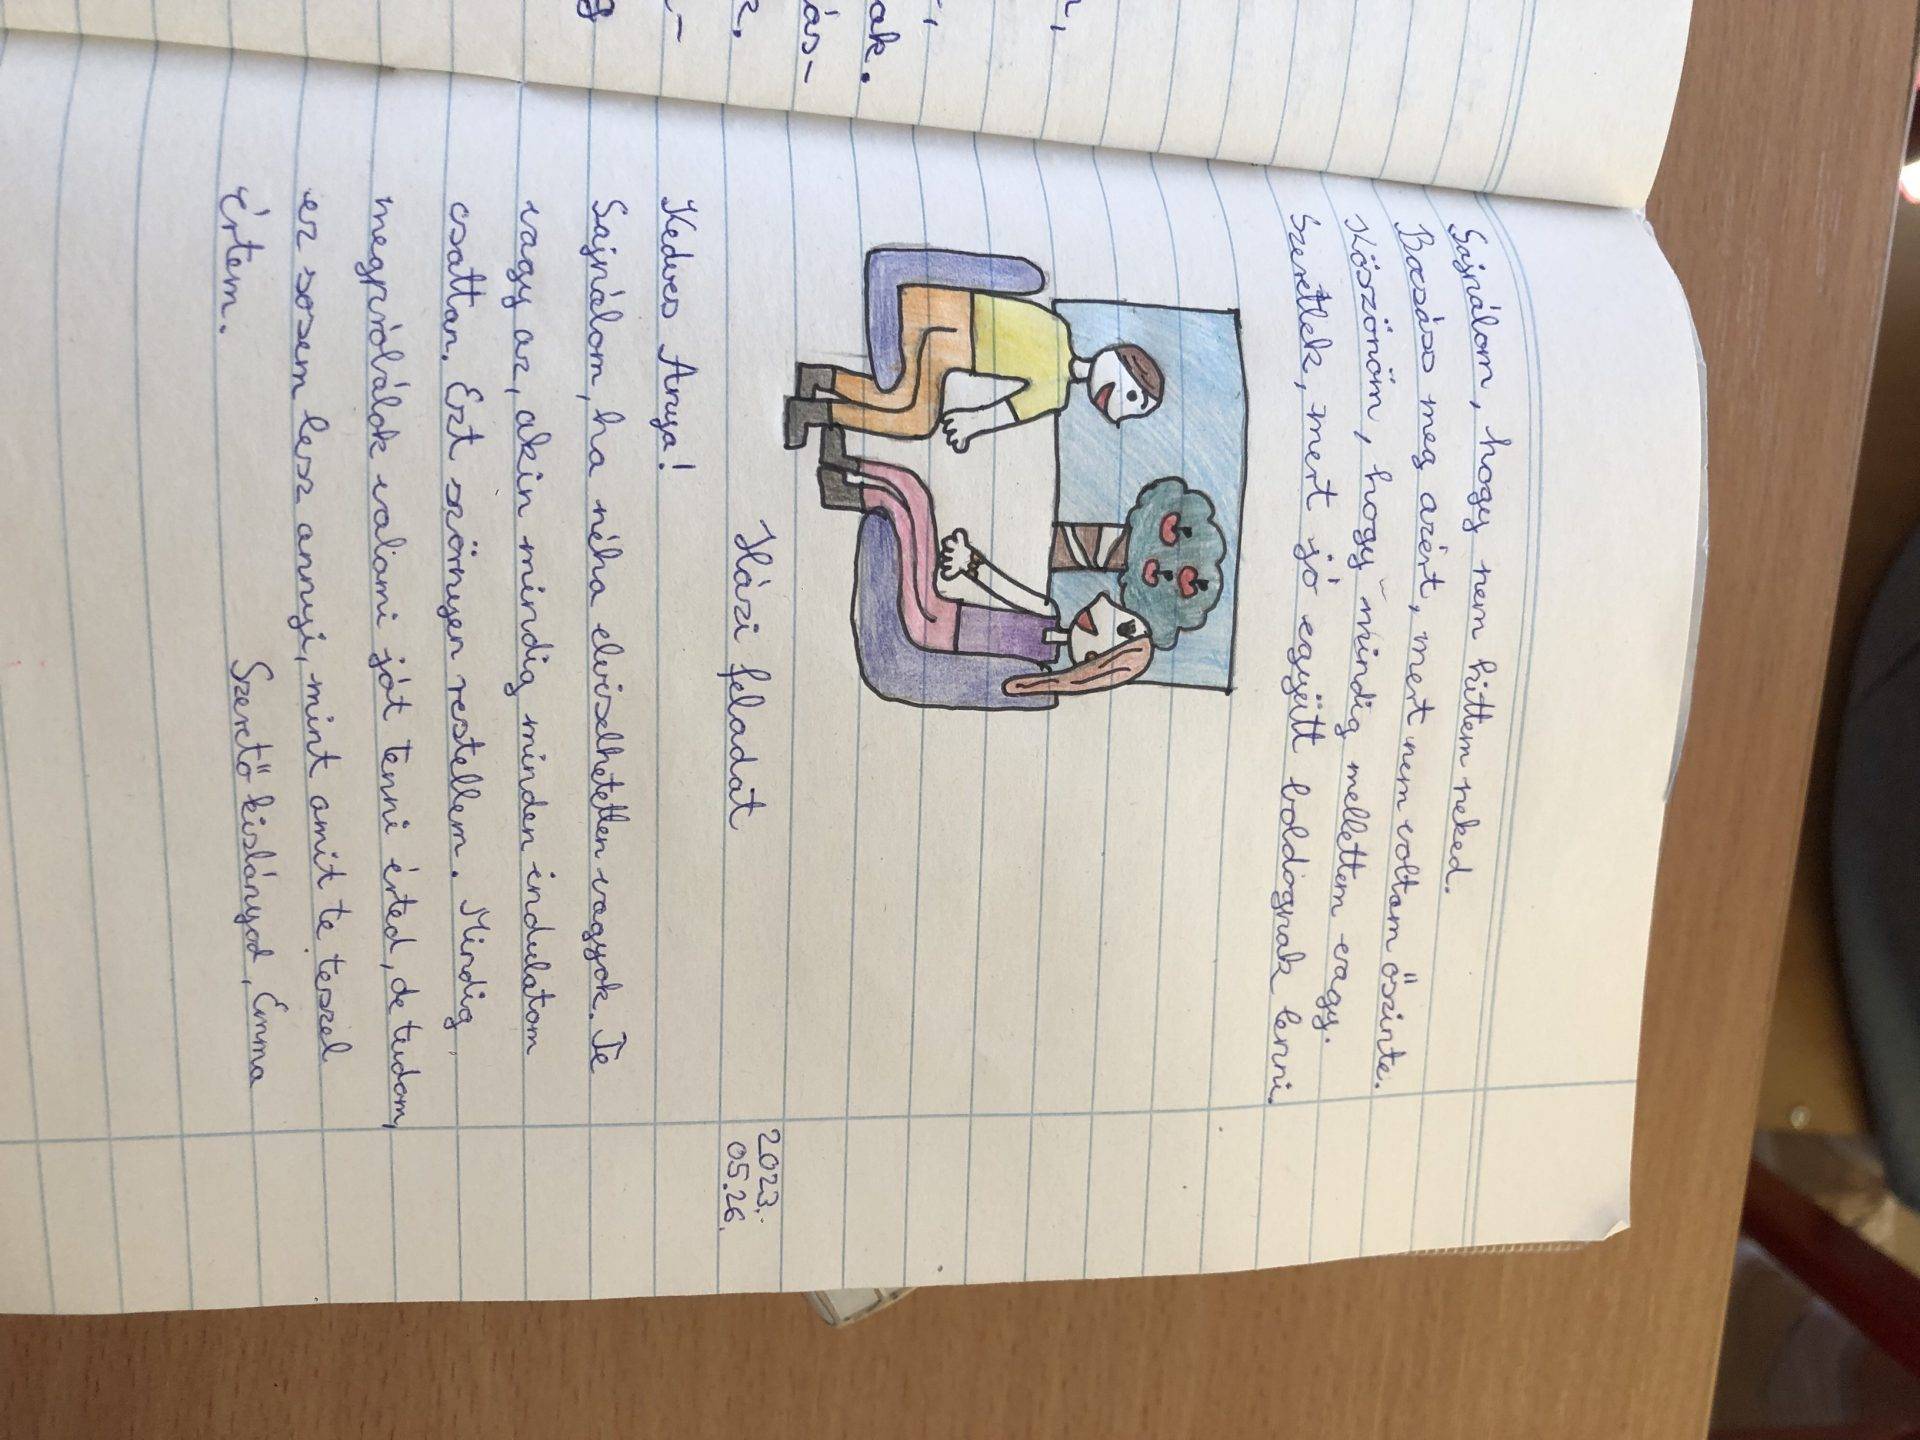 Sajnálom, hogy nem hittem neked.
Bocsáss meg azért, mert nem voltam őszinte.
Köszönöm, hogy mindig mellettem vagy.
Szeretlek, mert jó együtt boldognak lenni.
Házi feladat
2023.
05.26.
Kedves Anya!
Sajnálom, ha néha elviselhetetlen vagyok. Te
vagy az, akin mindig minden indulatom
csattan. Ezt szörnyen restellem. Mindig
megpróbálok valami jót tenni érted, de tudom,
ez sosem lesz annyi, mint amit te teszel
értem.
Szerető kislányod, Emma
ak.
ás-